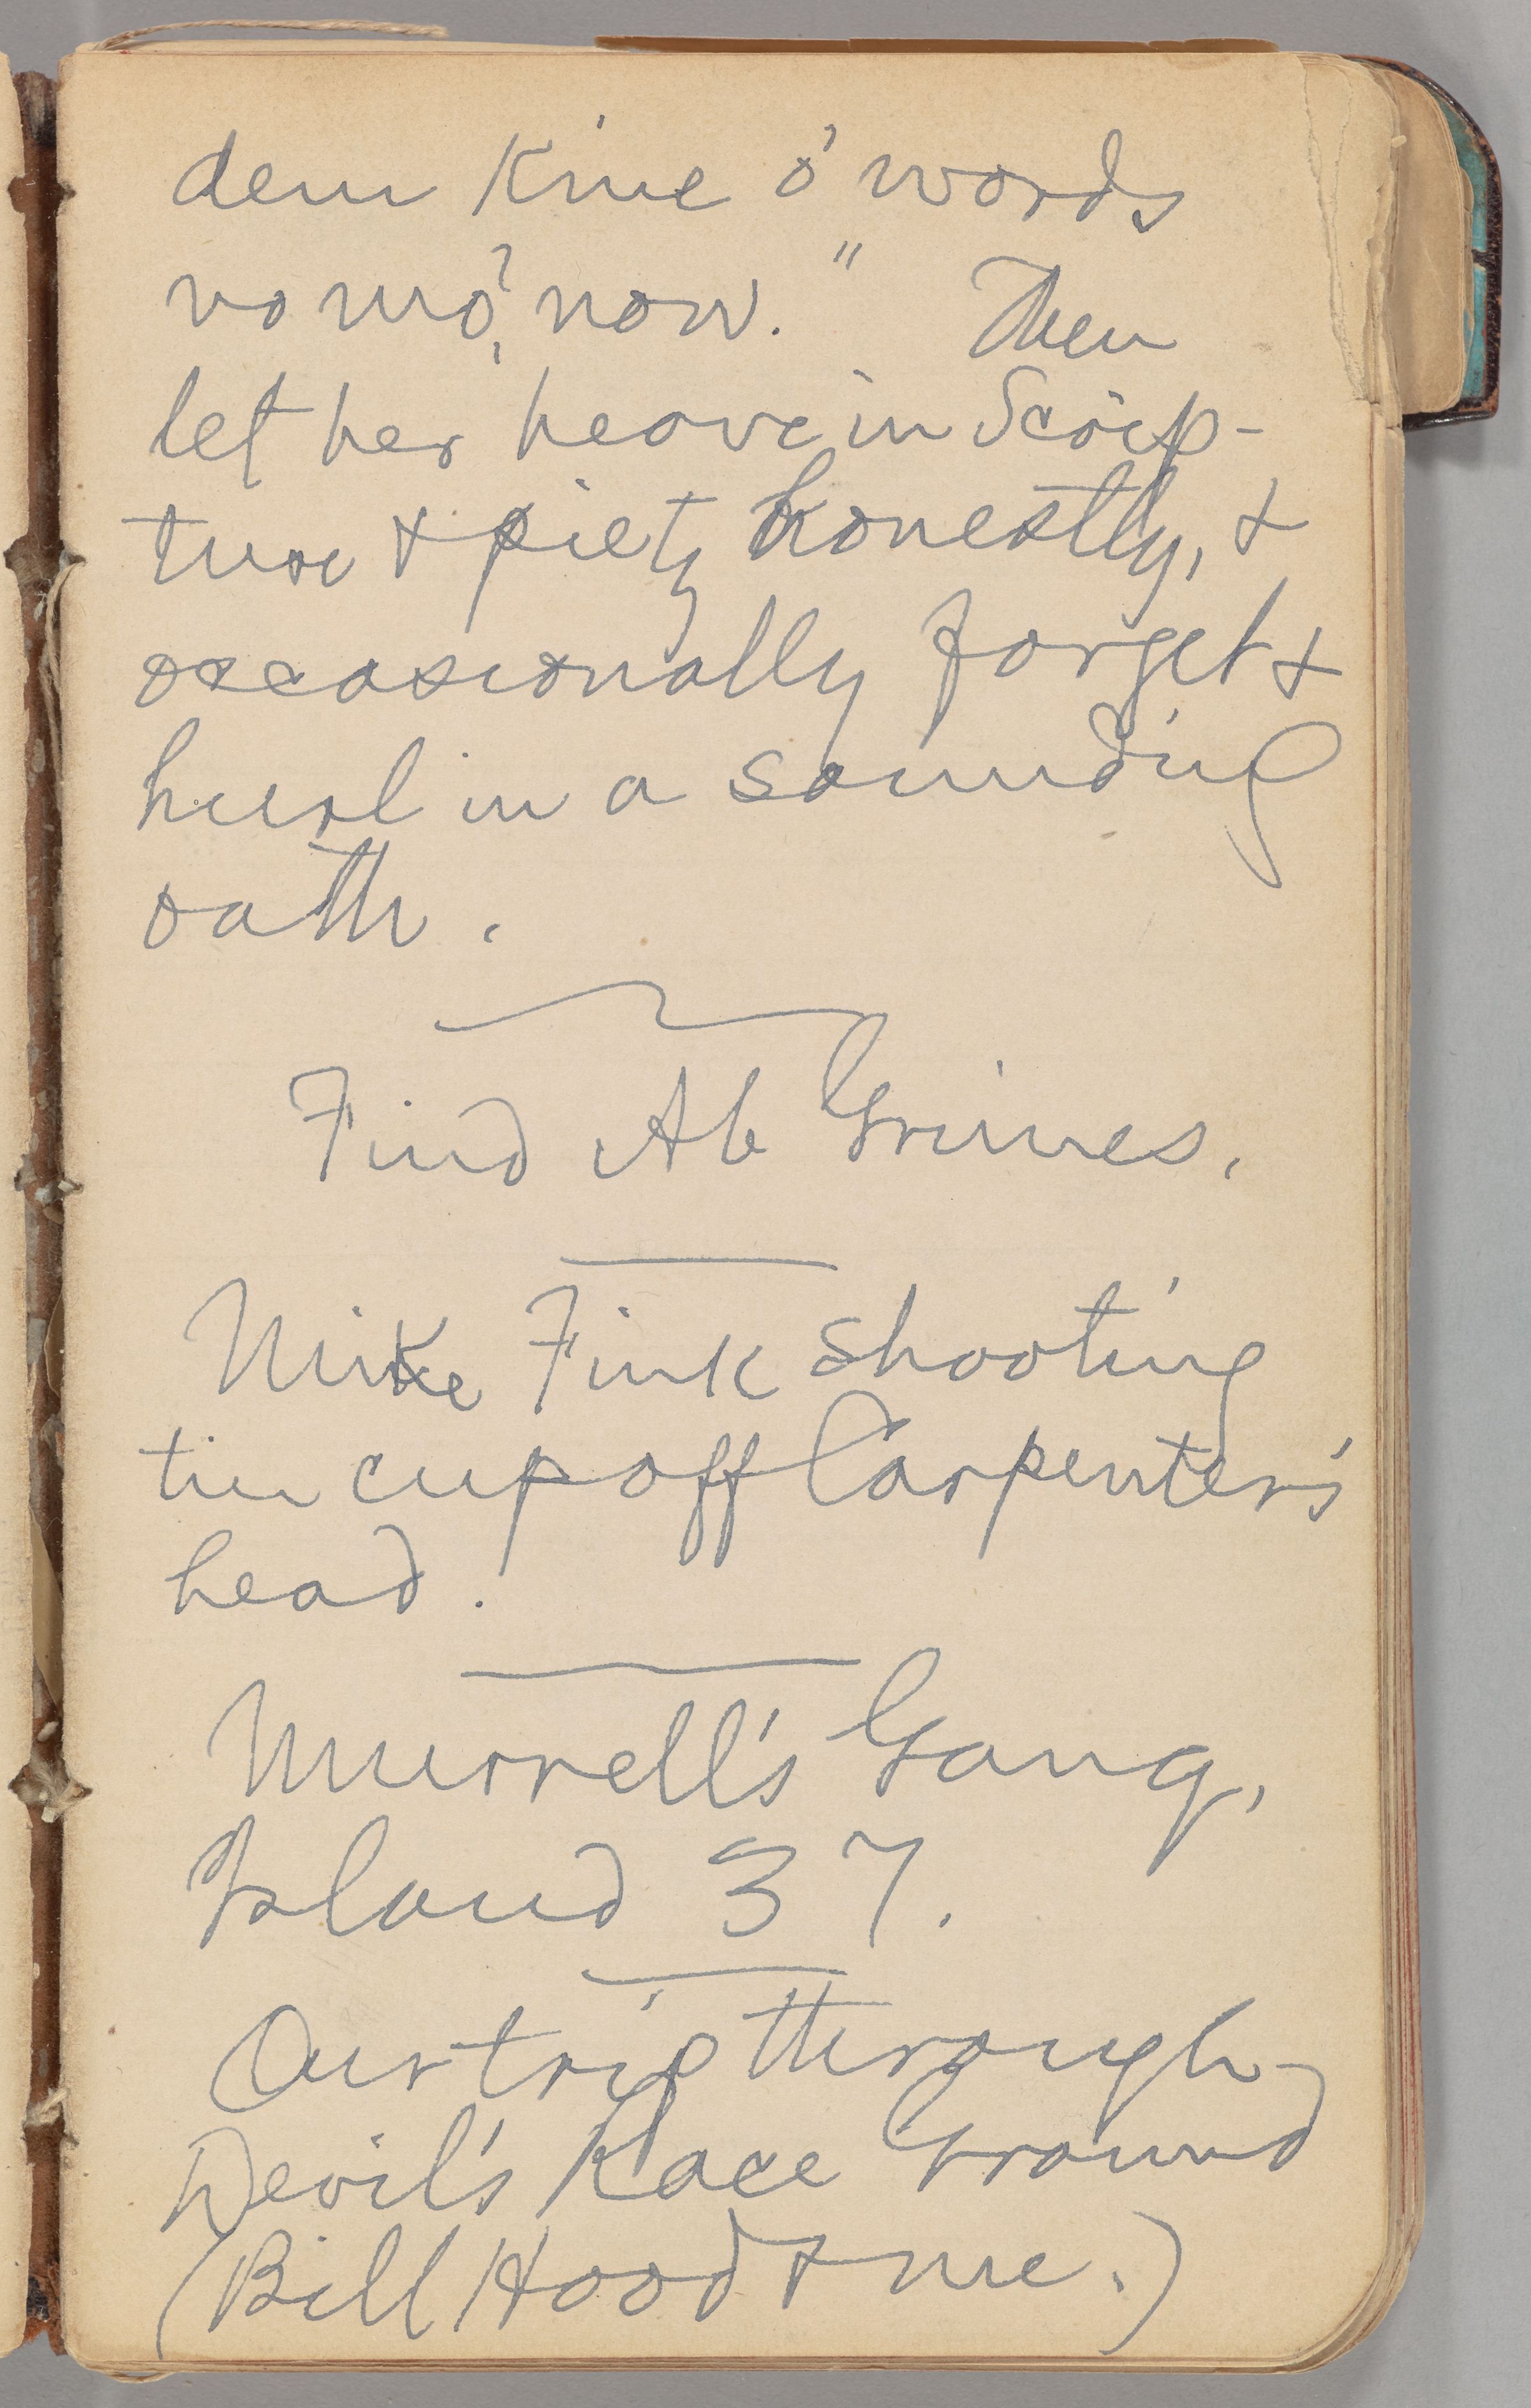 dem kine o' words
no mo', now." Then
let her heave in Scrip-
ture & piety honestly, &
occasionally forget &
hurl in a sounding
oath.
Find Ab Grimes.
Mike Fink shooting
tin cup off Carpenter's
head.
Murrell's Gang,
Island 37.
Our trip through
Devil's Race Ground
(Bill Hood & me.)